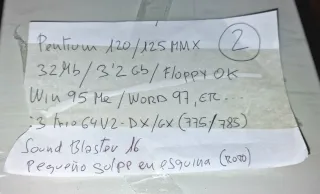 Pentium 120/125 MMX
2
32Mb / 3'2 Gb / Floppy OK
Win 95 Me / WORD 97, ETC..
S3 Trio 64V2-DX/GX (775/785)
Sound Blaster 16
Pequeño golpe en esquina (2020)